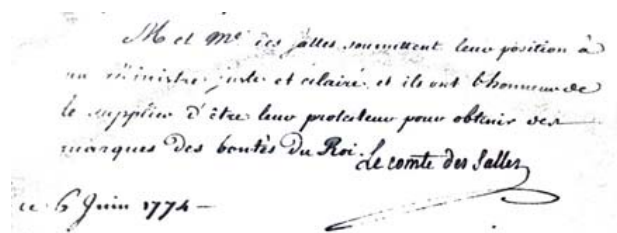 M et Me des Salles soumettent leur position à
un ministre juste et éclairé, et ils ont l'honneur de
le supplier d'être leur protecteur pour obtenir des
marques des bontés du Roi.
Le comte des Salles
ce 6 Juin 1774 —